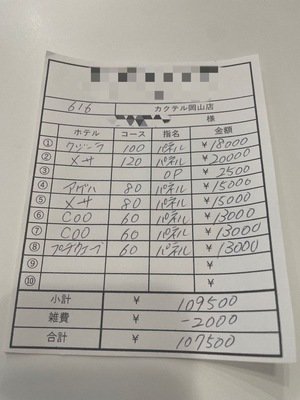 616 カクテル岡山店
様
ホテル コース 指名 金額
① クリーフ 100 パネル ¥18000
② メサ 120 パネル ¥20000
③ OP ¥2500
④ アゲハ 80 パネル ¥15000
⑤ メサ 80 パネル ¥15000
⑥ COO 60 パネル ¥13000
⑦ COO 60 パネル ¥13000
⑧ 60 パネル ¥13000
⑨ ¥
⑩ ¥
小計 ¥ 109500
雑費 ¥ -2000
合計 ¥ 107500